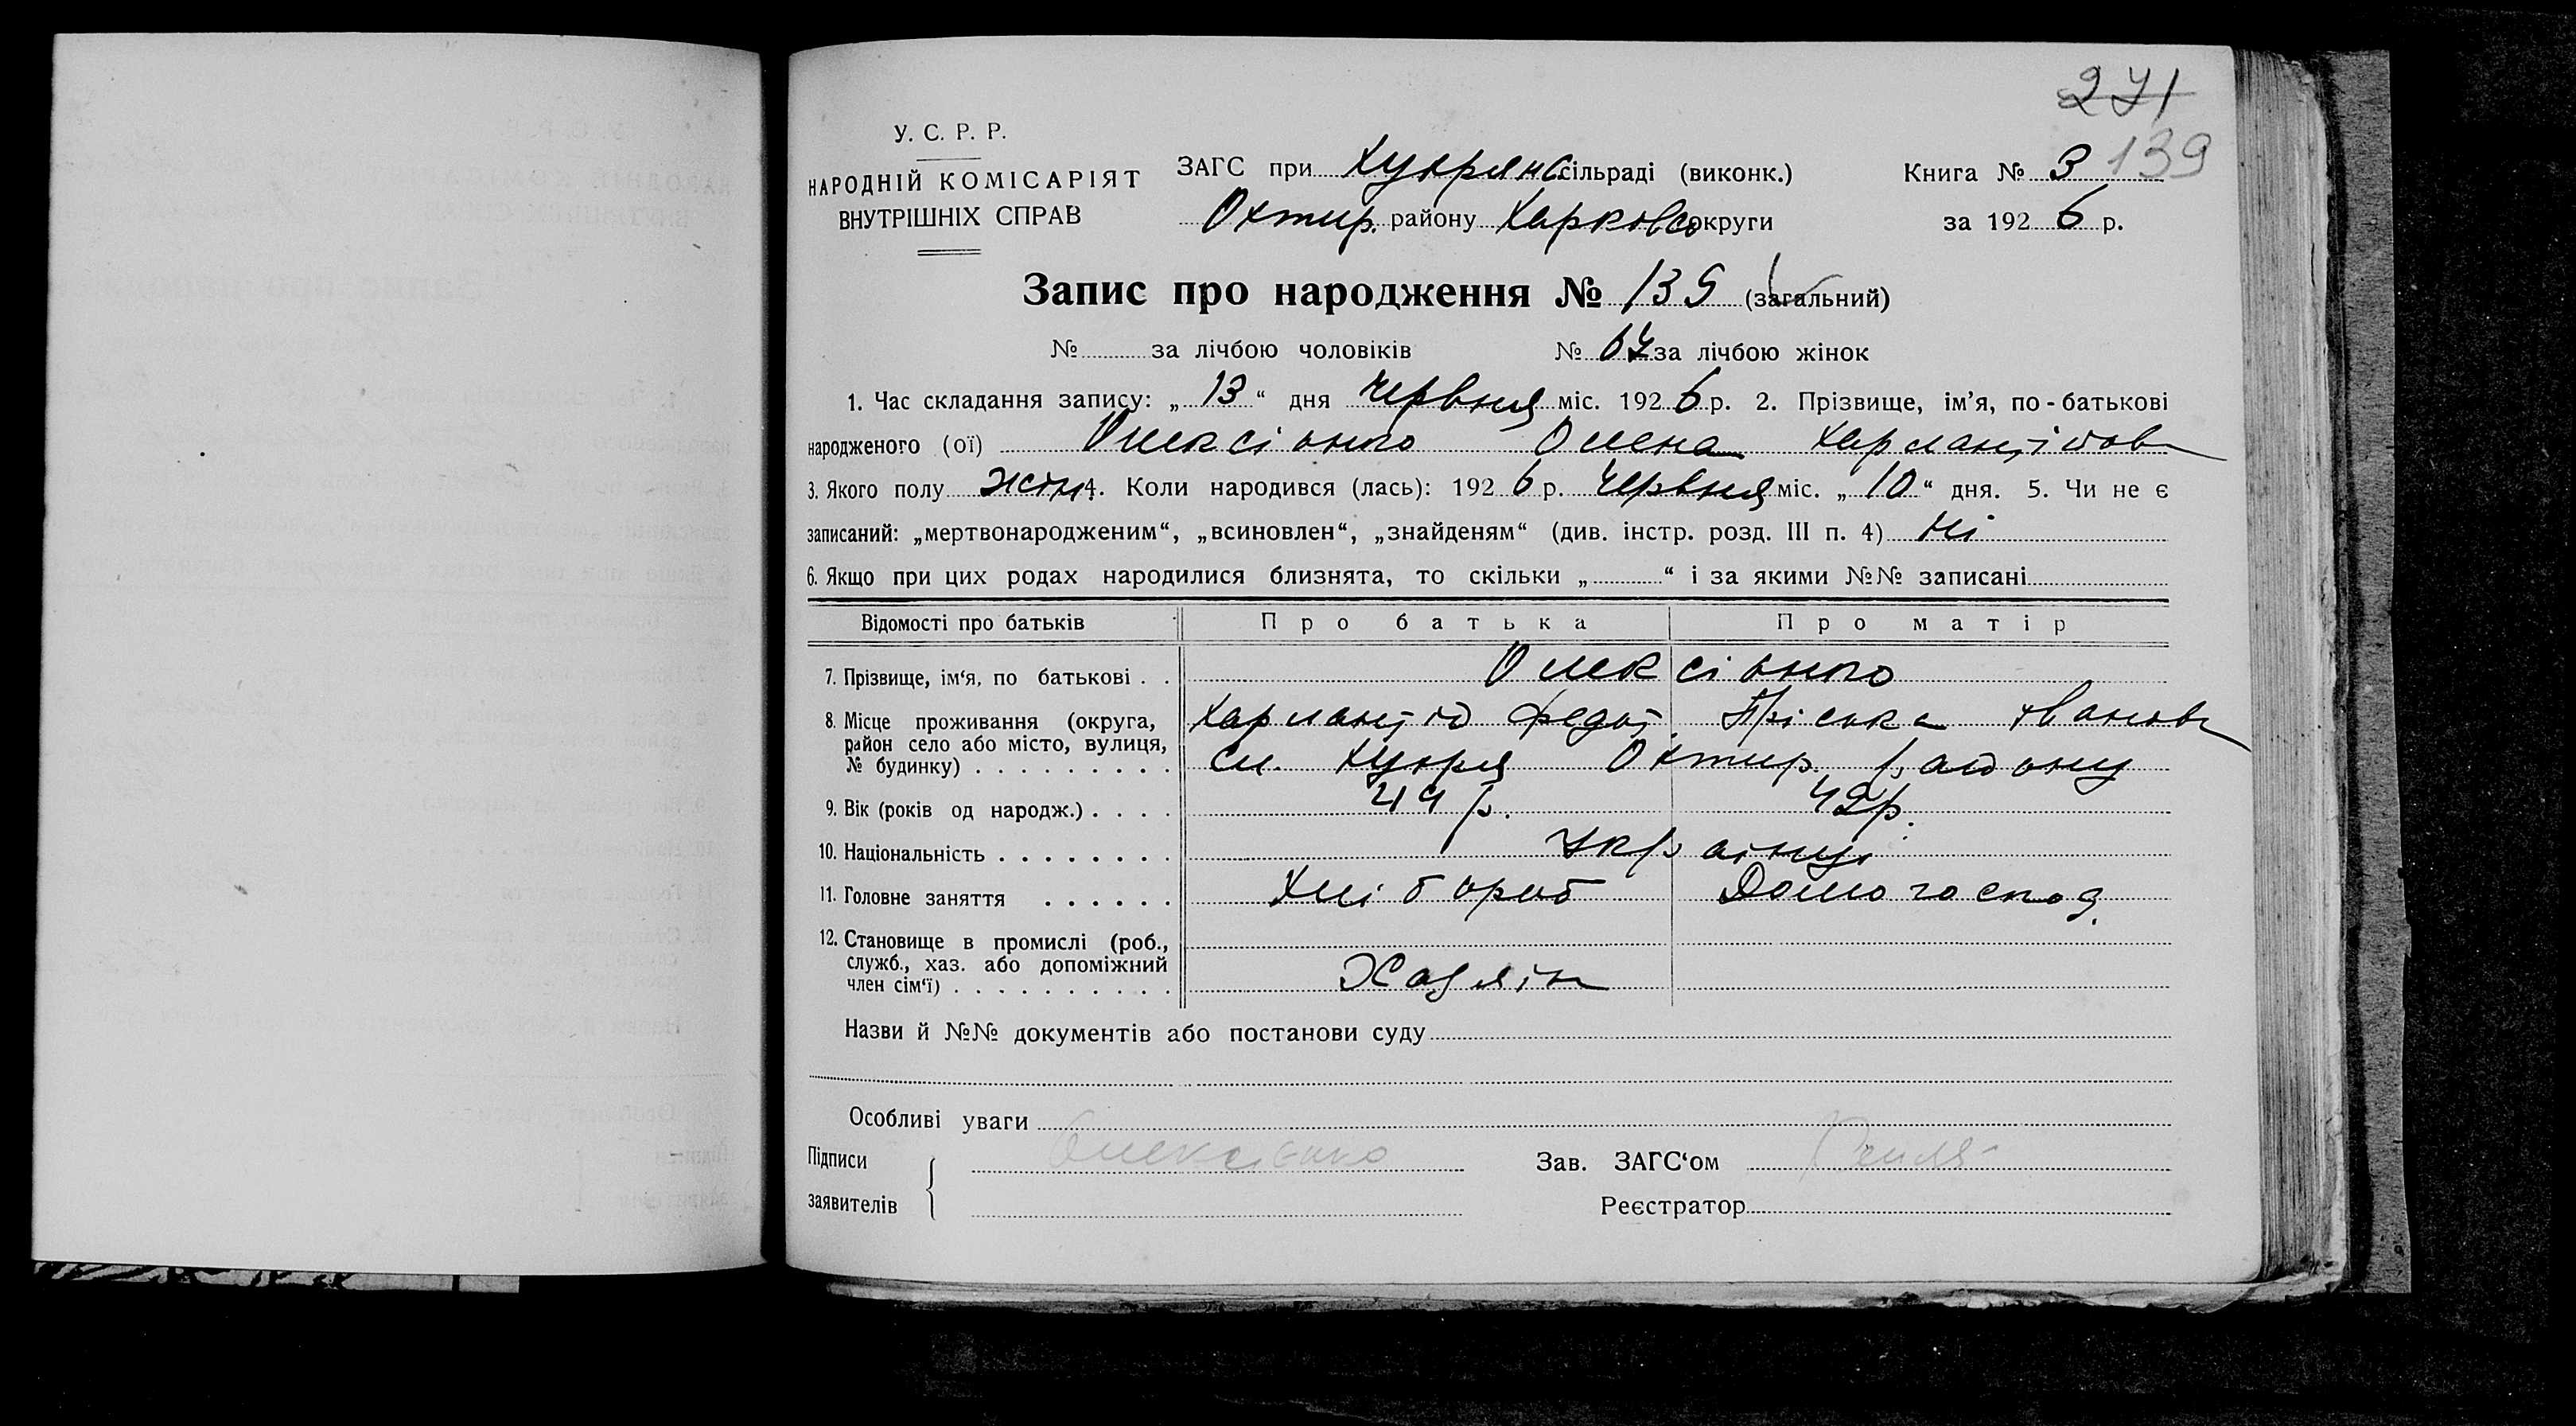 271
У. С. Р. Р.
НАРОДНІЙ КОМІСАРІЯТ
ВНУТРІШНІХ СПРАВ
ЗАГС при Хухрянс сільраді (виконк.)
Охтир. району Харковсо округи
Книга № 3 139
за 192 6 р.
Запис про народження № 139 (загальний)
№ за лічбою чоловіків № 67 за лічбою жінок
1. Час складання запису: „ 13 “ дня червня міс. 192 6 р. 2. Прізвище, ім’я, по-батькові
народженого (ої) Олексієнко Олена
3. Якого полу жін 4. Коли народився (лась): 192 6 р. червня міс. „ 10 “ дня. 5. Чи не є
записаний: „мертвонародженим“, „всиновлен“, „знайденям“ (див. інстр. розд. III п. 4) Ні
6. Якщо при цих родах народилися близнята, то скільки „ “ і за якими №№ записані
Відомості про батьків Про батька Про матір
7. Прізвище, ім‘я, по батькові . . Олексієнко
8. Місце проживання (округа, Федот. Пріська Іванов
район село або місто, вулиця, сл. Хухря Охтир. району
№ будинку) . . . . . . . . .
9. Вік (років од народж.) . . . . 44 р. 42 р.
10. Національність . . . . . . . . Українці
11. Головне заняття . . . . . . Хлібороб Домогоспод.
12. Становище в промислі (роб.,
служб., хаз. або допоміжний
член сім‘ї) . . . . . . . . . . Хазяїн
Назви й №№ документів або постанови суду
Особливі уваги
Підписи Олексієнко Зав. ЗАГС‘ом
заявителів Реєстратор